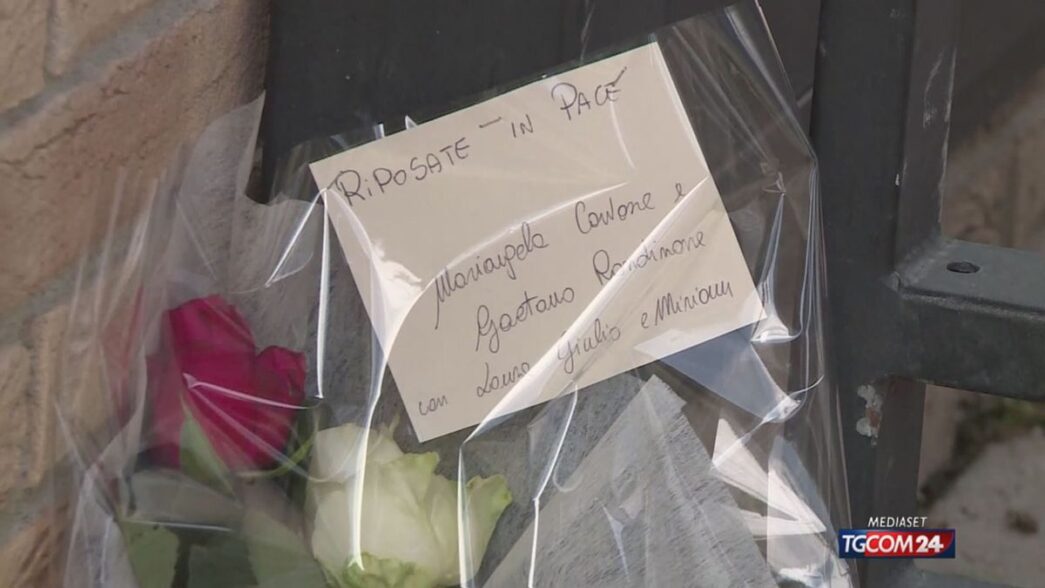 RiPOSATE - IN PACE
Mariangela Contone e
Gaetano Rondinone
con Laura Giulio e Miriam
MEDIASET
TGCOM24